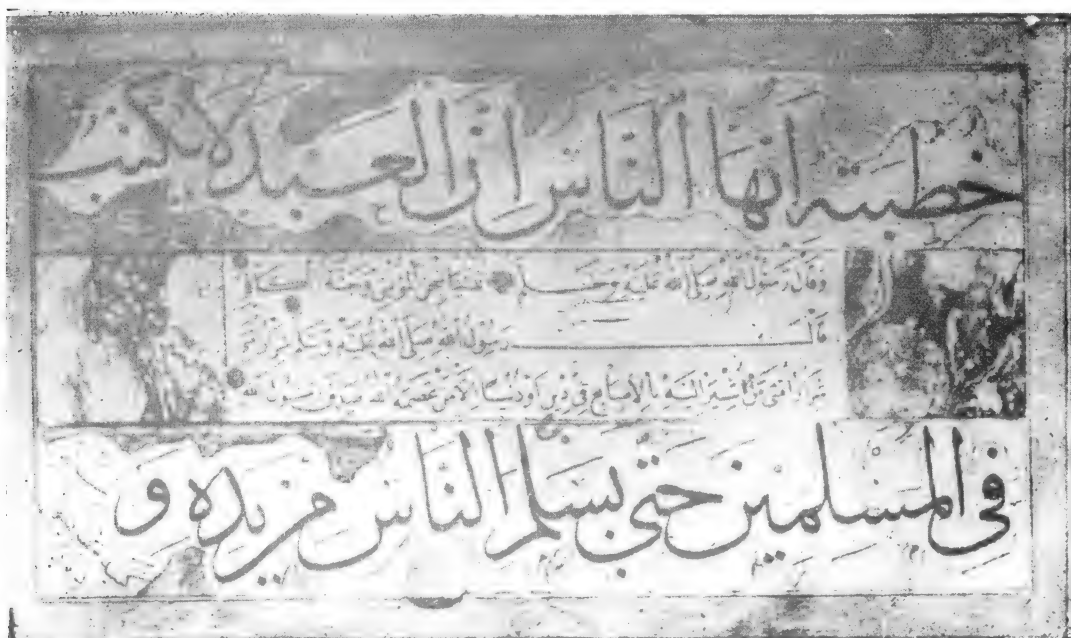 خطبته ايها الناس ان العبد لا يكتب
وقال رسول الله صلى الله عليه وسلم
قال رسول الله صلى الله عليه وسلم
بالاصابع في دين او دنيا الا من عصمه الله صدق رسول الله
في المسلمين حتى يسلم الناس من يده و